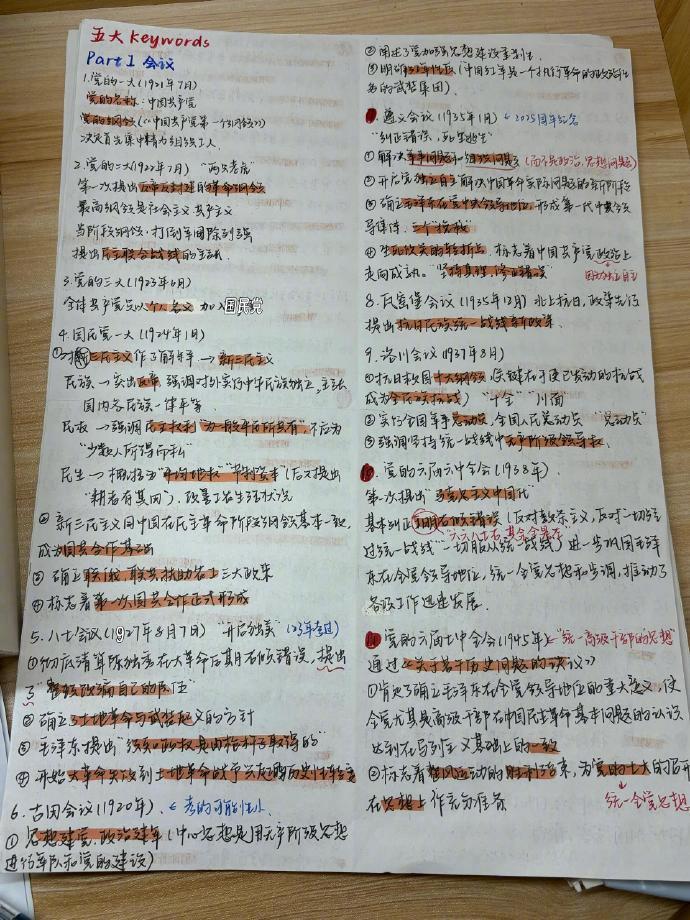 五大 keywords
Part 1 会议
1.党的一大(1921年7月)
党的名称：中国共产党
党的纲领(《中国共产党第一个纲领》)
决定首先集中精力组织工人
2.党的二大(1922年7月) "两只老虎"
第一次提出反帝反封建的革命纲领
最高纲领是社会主义、共产主义
当阶段纲领：打倒军阀除列强
提出民主联合战线的主张
3.党的三大(1923年6月)
全体共产党员以个人名义加入国民党
4.国民党一大(1924年1月)
①对三民主义作了解释→新三民主义
民族→突出反帝 强调对外实行中华民族独立，主张
国内各民族一律平等
民权→强调民主权利"为一般平民所共有"，不应为
"少数人所得而私"
民生→概括为"平均地权""节制资本"(后又提出
"耕者有其田")，改善工农生活状况
②新三民主义同中国在民主革命阶段纲领基本一致，
成为国共合作基础
③确立联俄、联共、扶助农工三大政策
④标志着第一次国共合作正式形成
5.八七会议(1927年8月7日) "开启独美" (23年考过)
①彻底清算陈独秀在大革命后期右倾错误，提出
了"整顿改编自己的队伍"
②确立了土地革命与武装起义的方针
③毛泽东提出"须知政权是由枪杆子取得的"
④开始大革命失败到土地革命战争兴起的历史性转变
6.古田会议(1920年)，←考的可能性小
①思想建党、政治建军(中心思想是用无产阶级思想
进行军队和党的建设)
②阐述了党加强思想建设重要性
③明确红军性质(中国红军是一个执行革命的政治任
务的武装集团)。
7 遵义会议(1935年1月) ←2025周年纪念
"纠正错误，死里逃生"
①解决军事问题和组织问题(而不是政治、思想问题)
②开启党独立自主解决中国革命实际问题的新阶段
③确立毛泽东在党中央领导地位，形成第一代中央领
导集体，三个"挽救"
④生死攸关的转折点，标志着中国共产党政治上
走向成熟。"坚持真理，修正错误"
因为独立自主
8.瓦窑堡会议(1935年12月) 北上抗日，政策先行
提出抗日民族统一战线新政策．
9.洛川会议(1937年8月)
①抗日救国十大纲领(关键在于使已发动的抗战
成为全民族抗战) "十全""川面"
②实行全国军事总动员，全国人民总动员 "总动员"
③强调坚持统一战线中无产阶级领导权．
10.党的六届六中全会(1938年)．
第一次提出"马克思主义中国化"
基本纠正王明右倾错误(反对教条主义，反对"一切经
过统一战线""一切服从统一战线") 进一步巩固毛泽
东在全党领导地位，统一全党思想和步调，推动了
各项工作迅速发展．
11.党的六届七中全会(1945年)←"统一高级干部的思想"
通过《关于若干历史问题的决议》
①肯定了确立毛泽东在全党领导地位的重大意义，使
全党尤其是高级干部在中国民主革命基本问题的认识
达到在马列主义基础上的一致
②标志着整风运动的胜利结束，为党的七大的召开
在思想上作充分准备
统一全党思想